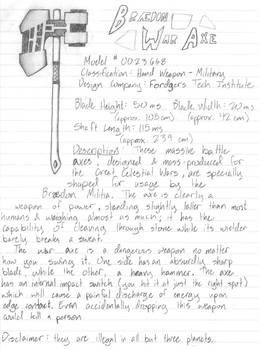 BRÆDON
WAR AXE
Model # 0023668
Classification: Hand Weapon - Military
Design Company: Fordgers Tech Institute
Blade Height: 50ms Blade Width: 20ms
(approx. 105 cm) (approx. 42 cm)
Shaft Length: 115ms
(approx 239 cm)
Description: These massive battle
axes, designed & mass-produced for
the Great Celestial Wars, are specially
shaped for usage by the
Brædon Militia. The axe is clearly a
weapon of power, standing slightly taller than most
humans & weighing almost as much; it has the
capability of cleaving through stone while its wielder
barely breaks a sweat.
The war axe is a dangerous weapon no matter
how you swing it. One side has an absurdly sharp
blade, while the other, a heavy hammer. The axe
has an internal impact switch (you hit it at just the right spot)
which will cause a painful discharge of energy upon
edge contact. Even accidentally dropping this weapon
could kill a person.
Disclaimer: they are illegal in all but three planets.